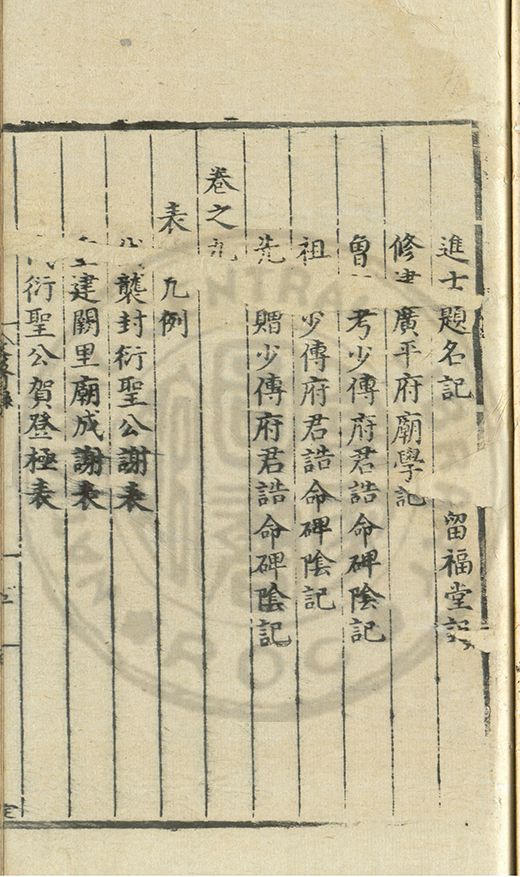 進士題名記 留福堂記
修建廣平府廟學記
曾 考少傅府君誥命碑陰記
祖 少傅府君誥命碑陰記
先 贈少傅府君誥命碑陰記
卷之九
表 九例
襲封衍聖公謝表
建闕里廟成謝表
衍聖公賀登極表